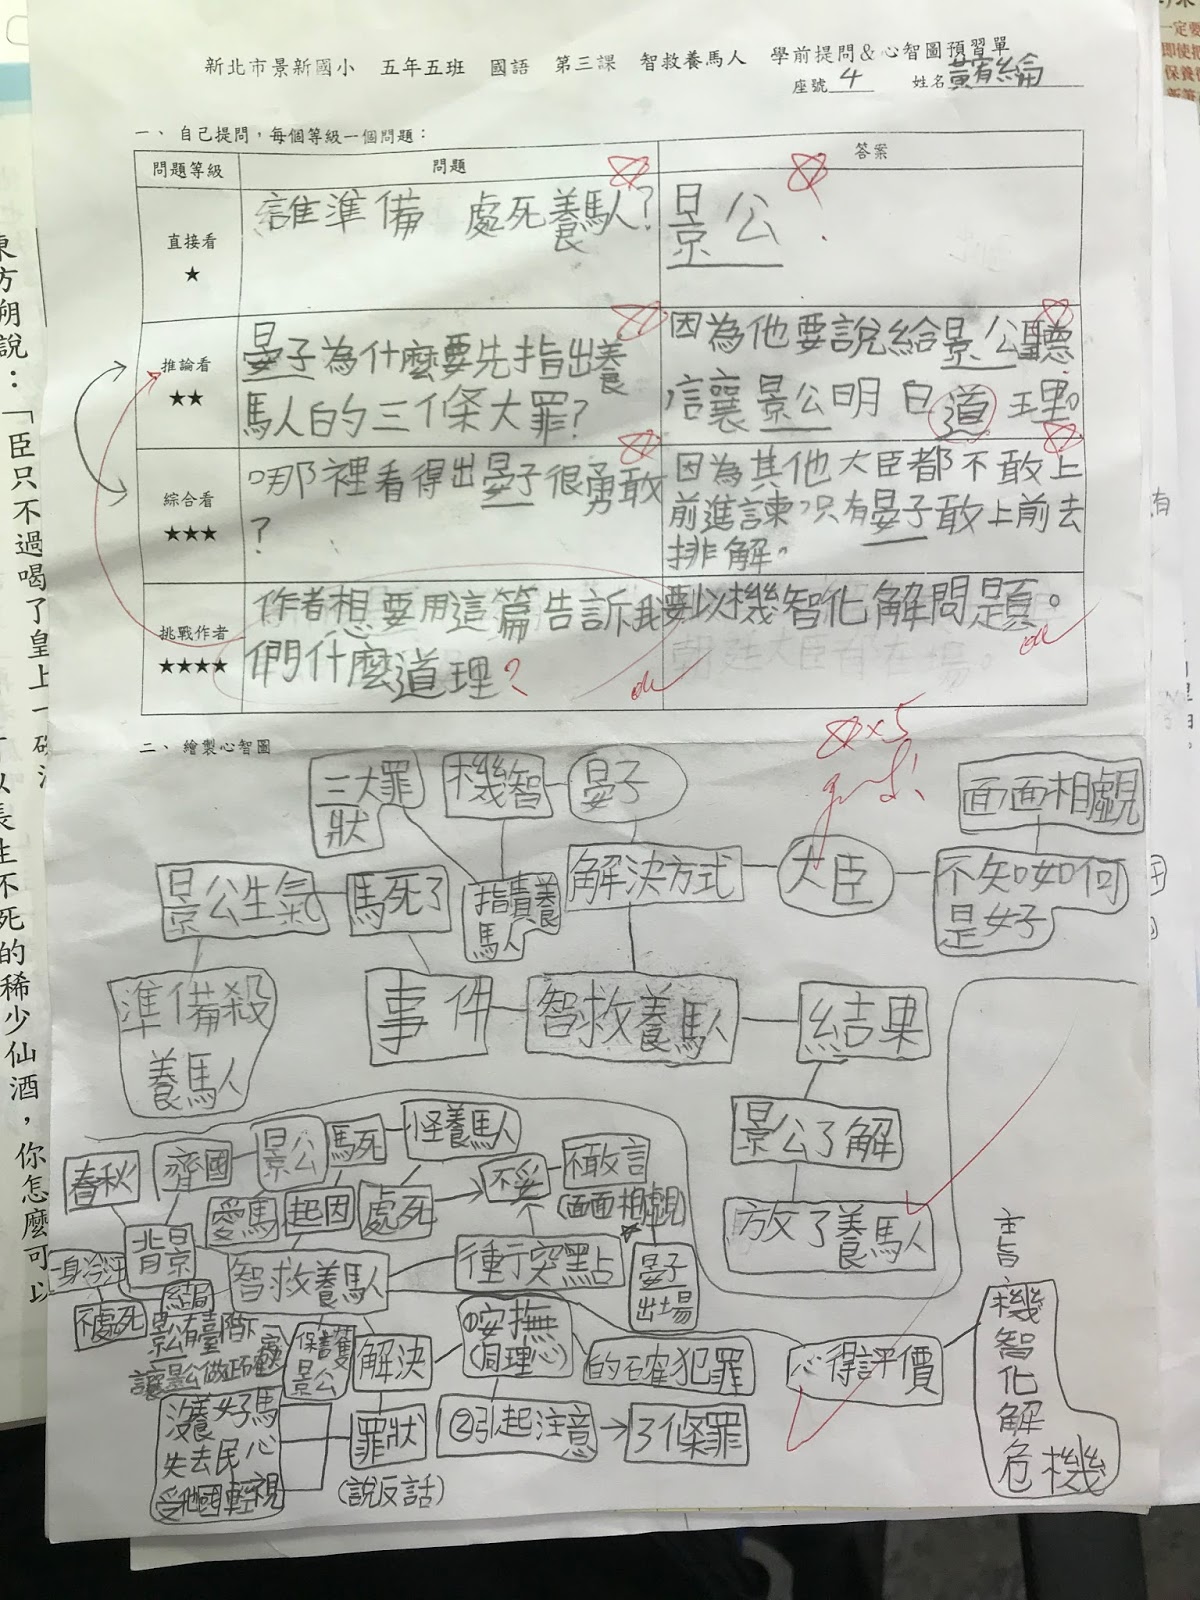 新北市景新國小 五年五班 國語 第三課 智救養馬人 學前提問&心智圖預習單
座號 4 姓名 黃宥綸
一、自己提問,每個等級一個問題:
問題等級 問題 答案
直接看
★
誰準備 處死養馬人?
景公
推論看
★★
晏子為什麼要先指出養
馬人的三條大罪?
因為他要說給景公聽
讓景公明白道理。
綜合看
★★★
哪裡看得出晏子很勇敢
?
因為其他大臣都不敢上
前進諫,只有晏子敢上前去
排解。
挑戰作者
★★★★
作者想要用這篇告訴我
們什麼道理?
要以機智化解問題。
ok
ok
二、繪製心智圖
☆x5
三大罪
狀
機智
晏子
面面相覷
景公生氣
馬死了
指責養
馬人
解決方式
大臣
不知如何
是好
準備殺
養馬人
事件
智救養馬人
結果
景公了解
放了養馬人
春秋
齊國
景公
馬死
怪養馬人
愛馬
起因
處死
不妥
不敢言
(面面相覷)
背景
智救養馬人
衝突點
晏子
出場
一身冷汗
不處死
結局
保護
景公
解決
①安撫
(同理心)
的確犯罪
心得評價
主旨
機智化解危機
沒養好馬
失去民心
受他國輕視
罪狀
(說反話)
②引起注意
3條罪
東方朔說:「臣只不過喝了皇上一
長生不死的稀少仙酒,你怎麼可以